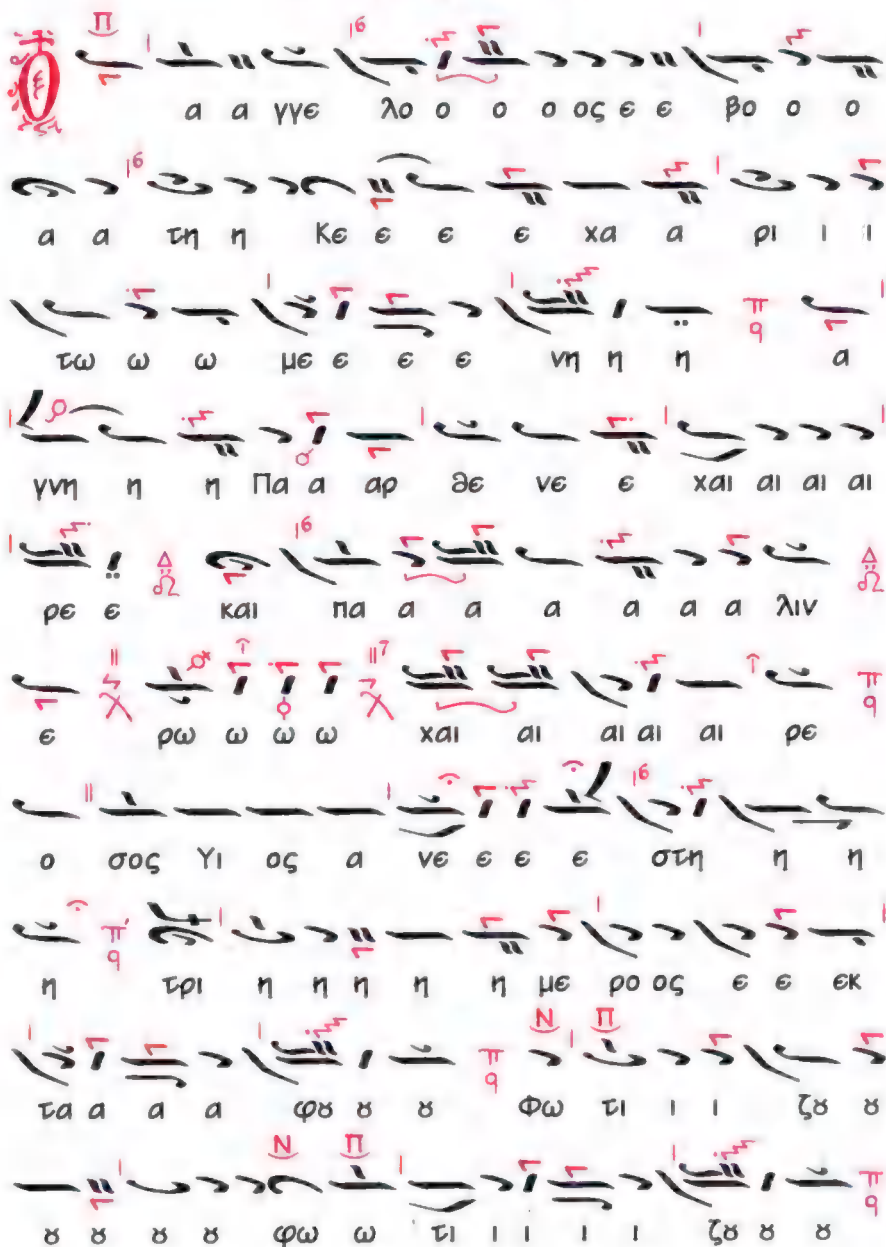 Ο α α γγε λο ο ο ο ος ε ε βο ο ο
α α τη η Κε ε ε ε χα α ρι ι ι
τω ω ω με ε ε ε νη η η α
γνη η η Πα α αρ θε νε ε χαι αι αι αι
ρε ε και πα α α α α α α λιν
ε ρω ω ω ω χαι αι αι αι αι ρε
ο σος Υι ος α νε ε ε ε στη η η
η τρι η η η η η με ρο ος ε ε εκ
τα α α α φȣ ȣ ȣ Φω τι ι ι ζȣ ȣ
ȣ ȣ ȣ ȣ φω ω τι ι ι ι ι ζȣ ȣ ȣ